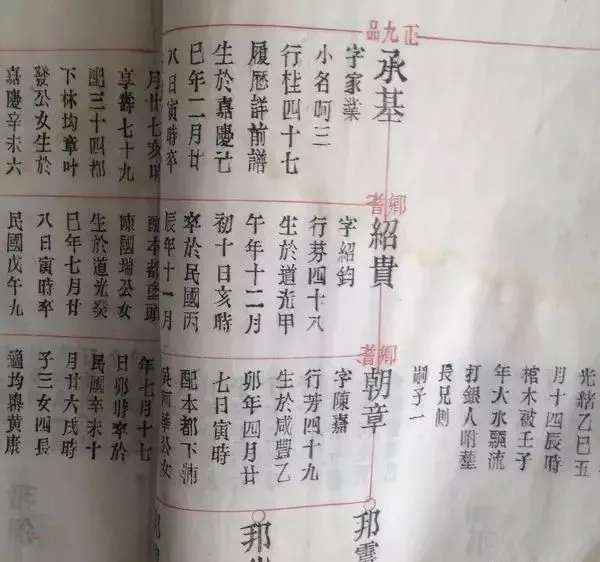 光緒乙巳五
月十四辰時
棺木被壬子
年大水飄流
打銀人唎塟
長兄側
嗣子一
正九品
承基
字家業
小名呵三
行桂四十七
履歷詳前譜
生於嘉慶己
巳年二月廿
八日寅時卒
月廿七亥時
享壽七十九
配三十四都
下林均章叶
發公女生於
嘉慶辛未六
鄉耆
紹貴
字紹鈞
行芬四十八
生於道光甲
午年十二月
初十日亥時
卒於民國丙
辰年十一月
配本都塗頭
陳國瑞公女
生於道光癸
巳年七月廿
八日寅時卒
民國戊午九
鄉耆
朝章
字陳嘉
行芳四十九
生於咸豐乙
卯年四月廿
七日寅時
配本都下沛
公女
年七月十七
日卯時卒於
民國辛未十
月廿六戌時
子三女四長
適均鼎黃康
邦
邦